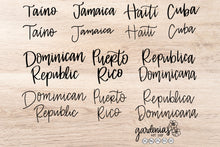 Taíno Jamaica Haití Cuba
Taíno Jamaica Haití Cuba
Dominican Republic
Puerto Rico
Republica Dominicana
Dominican Republic
Puerto Rico
Republica Dominicana
gardenias